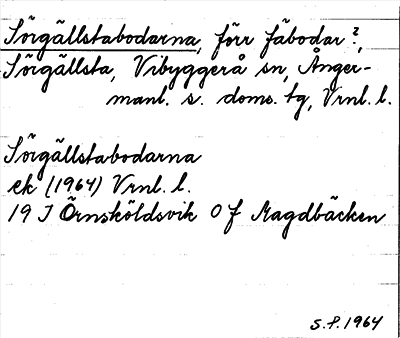 Sörgällstabodarna, förr fäbodar?,
Sörgällsta, Vibyggerå sn, Ånger-
manl. s. doms. tg, Vrnl. l.
Sörgällstabodarna
ek (1964) Vrnl. l.
19 J Örnsköldsvik 0 f Magdbäcken
S.P. 1964